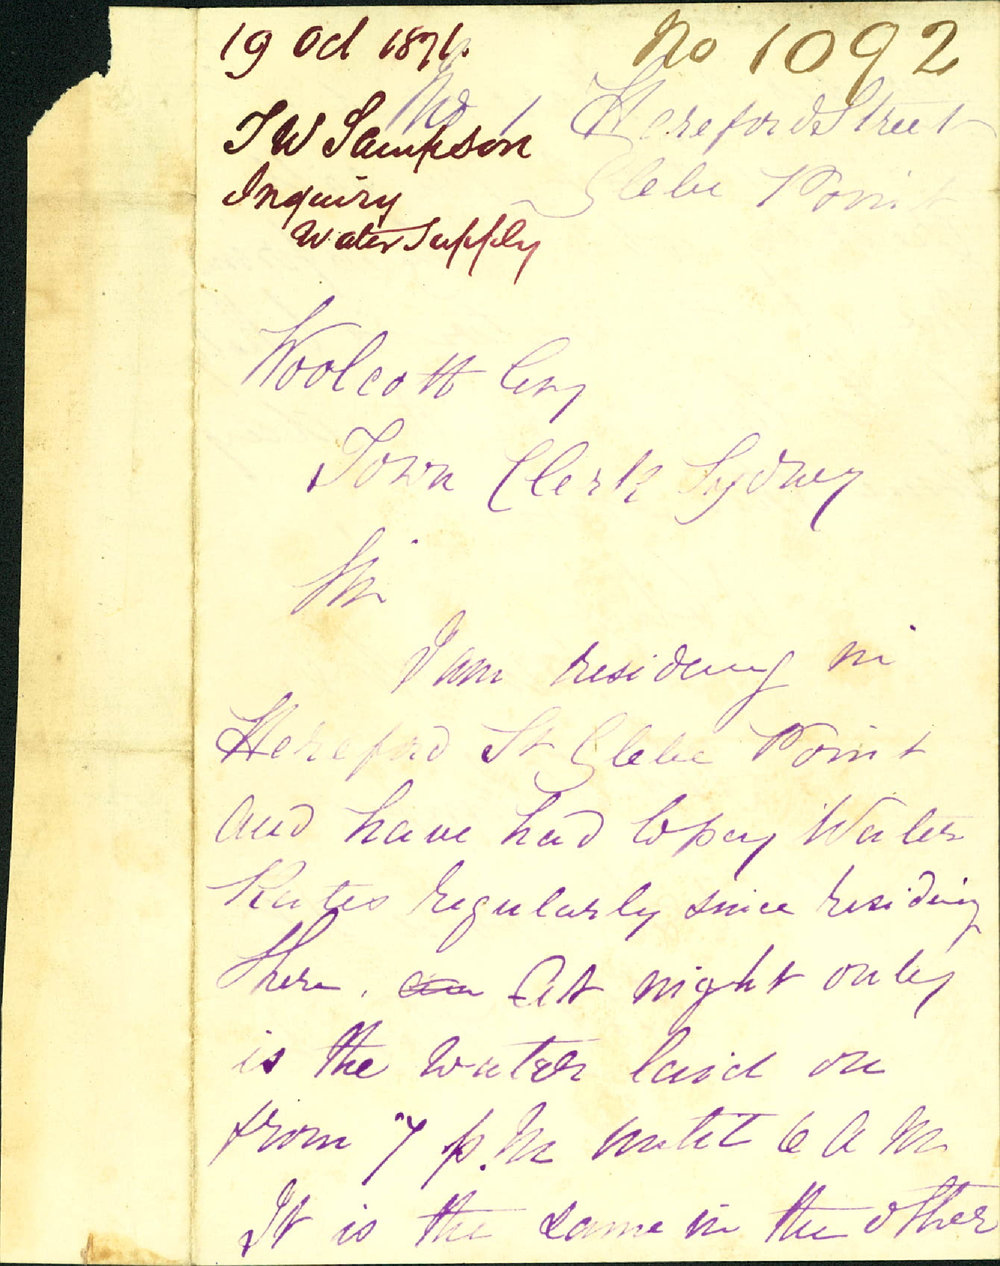 19 Oct 1871.
No 1092
No 1 Hereford Street
Glebe Point
T W Sampson
Inquiry
Water Supply
Woolcott Esq
Town Clerk Sydney
Sir
I am residing in
Hereford St Glebe Point
and have had to pay Water
Rates regularly since residing
there. At night only
is the water laid on
from 7 p.m until 6 A M
It is the same in the other